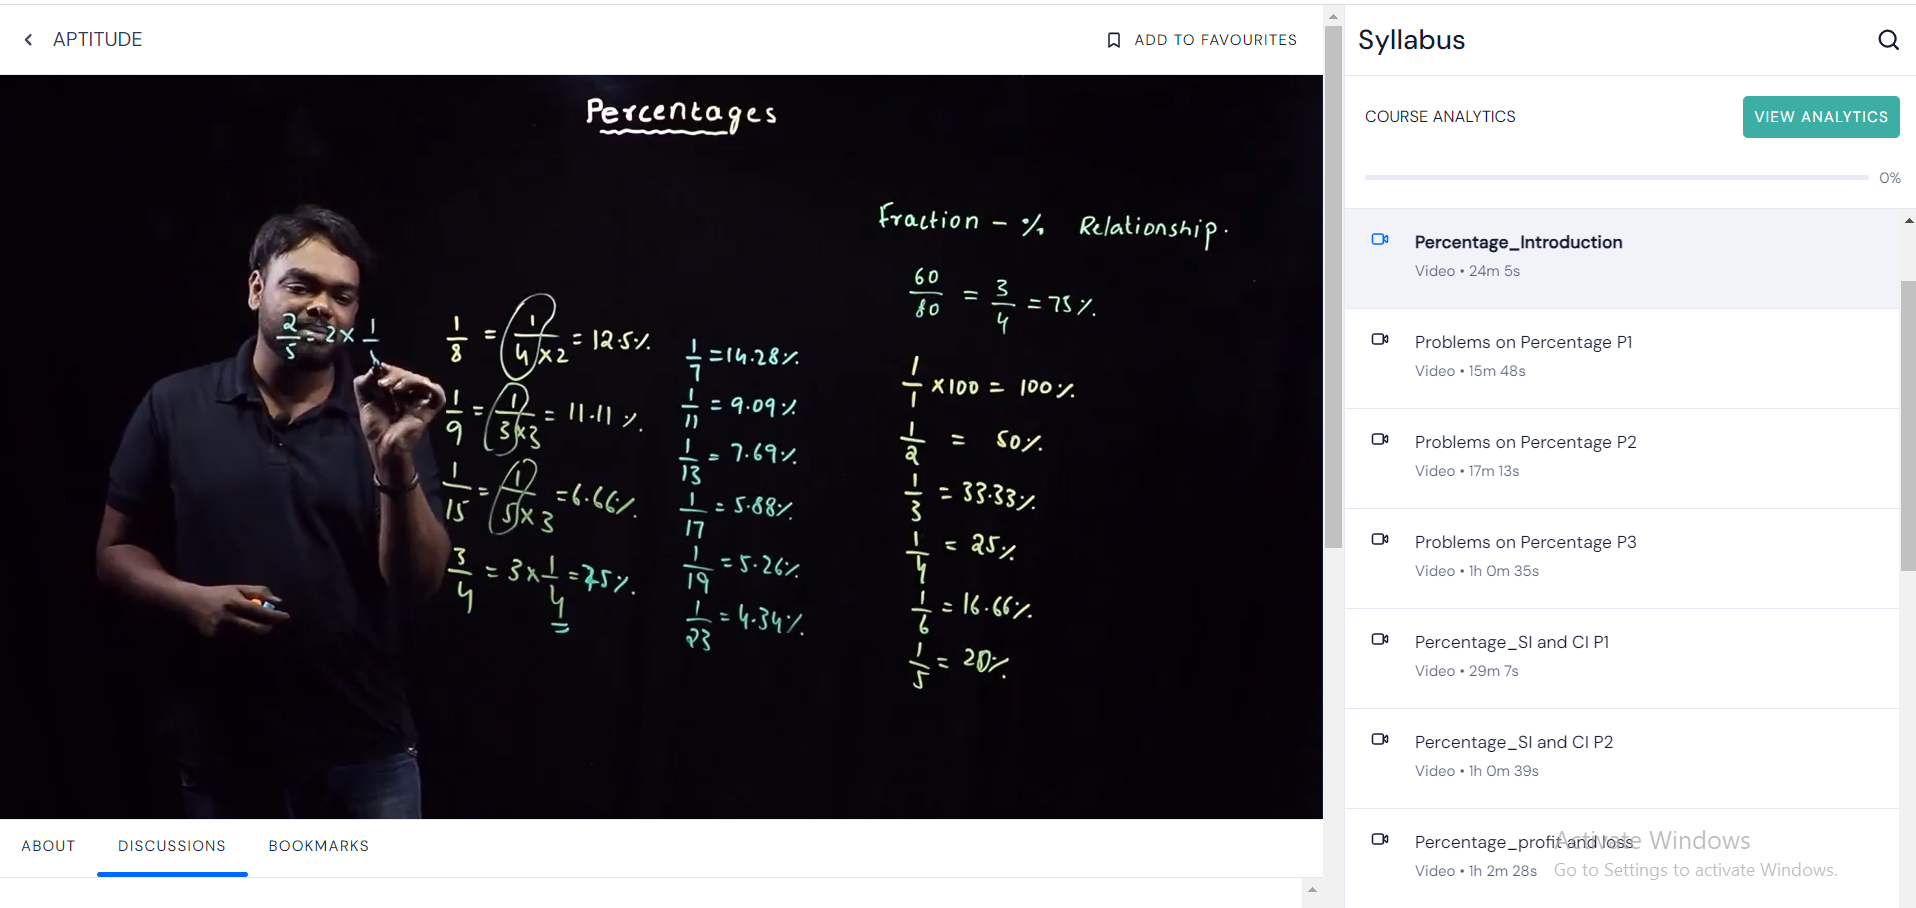 APTITUDE
ADD TO FAVOURITES
Percentages
Fraction - % Relationship.
60/80 = 3/4 = 75%.
1/1 ×100 = 100%
1/2 = 50%.
1/3 = 33.33%.
1/4 = 25%.
1/6 = 16.66%.
1/5 = 20%.
2/5 = 2 × 1/
1/8 = 1/4×2 = 12.5%.
1/9 = 1/3×3 = 11.11%.
1/15 = 1/5×3 = 6.66%.
3/4 = 3 × 1/4 = 75%.
1/7 = 14.28%.
1/11 = 9.09%.
1/13 = 7.69%.
1/17 = 5.88%.
1/19 = 5.26%.
1/23 = 4.34%.
ABOUT DISCUSSIONS BOOKMARKS
Syllabus
COURSE ANALYTICS VIEW ANALYTICS
0%
Percentage_Introduction
Video • 24m 5s
Problems on Percentage P1
Video • 15m 48s
Problems on Percentage P2
Video • 17m 13s
Problems on Percentage P3
Video • 1h 0m 35s
Percentage_SI and CI P1
Video • 29m 7s
Percentage_SI and CI P2
Video • 1h 0m 39s
Percentage_profit and loss
Video • 1h 2m 28s
Activate Windows
Go to Settings to activate Windows.